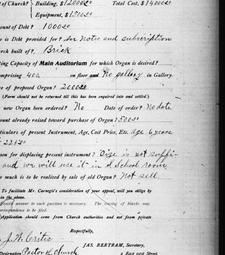 of Church? Building, $12000.00 Total Cost, $14000
Equipment, $1500.00
mount of Debt? 1000.00
is Debt provided for? by notes and subscription
rch built of, Brick
ting Capacity of Main Auditorium for which Organ is desired?
mprising 400 on floor and No gallery in Gallery.
e of proposed Organ? 2000.00
(Form should not be returned till this has been inquired into and settled.)
new Organ been ordered? No Date of order? No date
mount already raised toward purchase of Organ?
rticulars of present Instrument, Age, Cost Price, Etc. Age 6 years
son for displacing present instrument? Size is not suffi-
and we will use it in S. School room
much is to be realized by sale of old Organ? Not sell.
To facilitate Mr. Carnegie's consideration of your appeal, will you oblige by
in the
answer to each question is necessary. The of blanks may
correspondence to be ignored.
Application should come from Church authorities and not from private
Respectfully,
JAS. BERTRAM, Secretary,
Designation Pastor of Church 2 East 91st Street